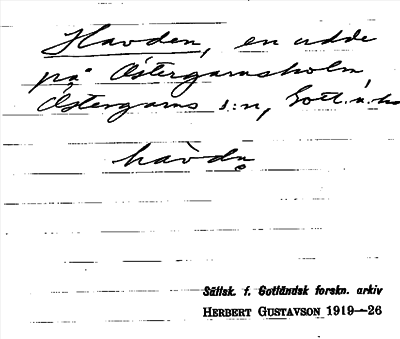 Havden, en udde
på Östergarnsholm,
Östergarns s:n, Gotl. n. hd
havdn̥
Sällsk. f. Gotländsk forskn. arkiv
HERBERT GUSTAVSON 1919—26